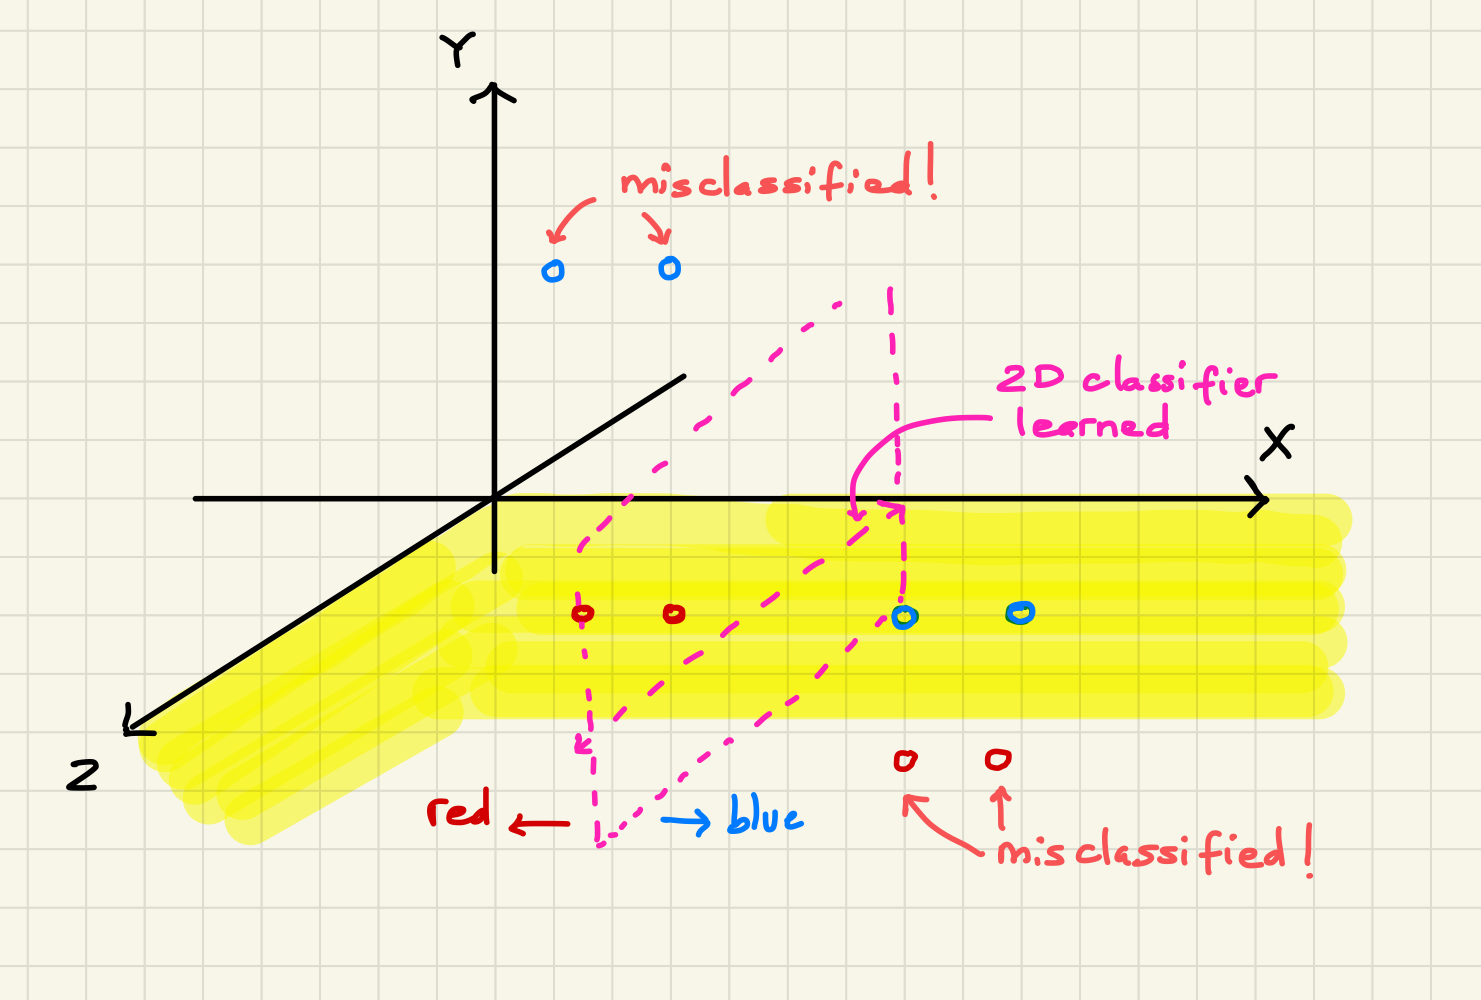 Y
misclassified!
2D classifier
learned
X
Z
red
blue
misclassified!